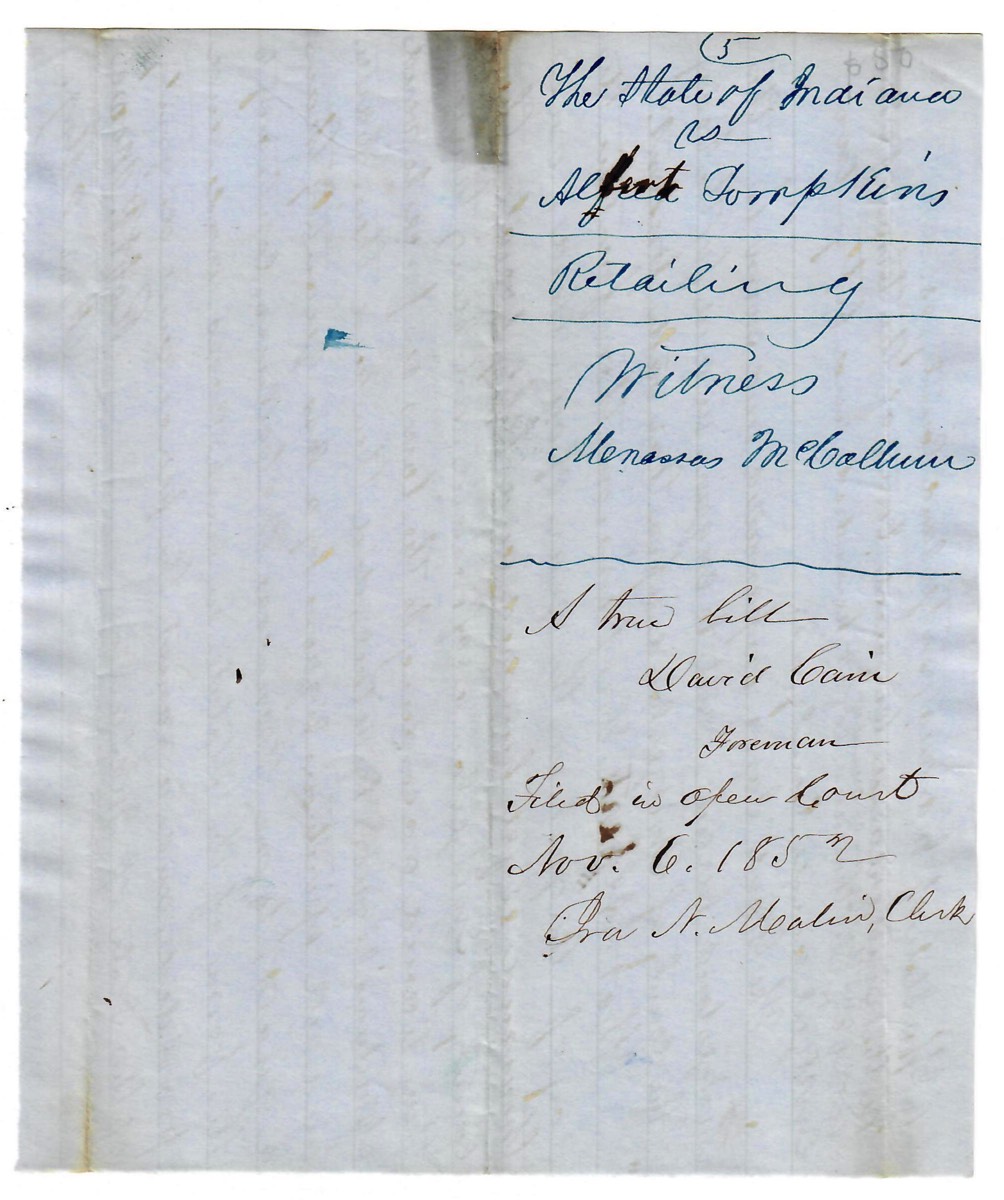 (5
The State of Indiana
vs
Tompkins
Retailing
Witness
Menassas McCallum
A true bill
David Cain
Foreman
Filed in open Court
Nov. 6. 1852
Ira N. Malin, Clerk